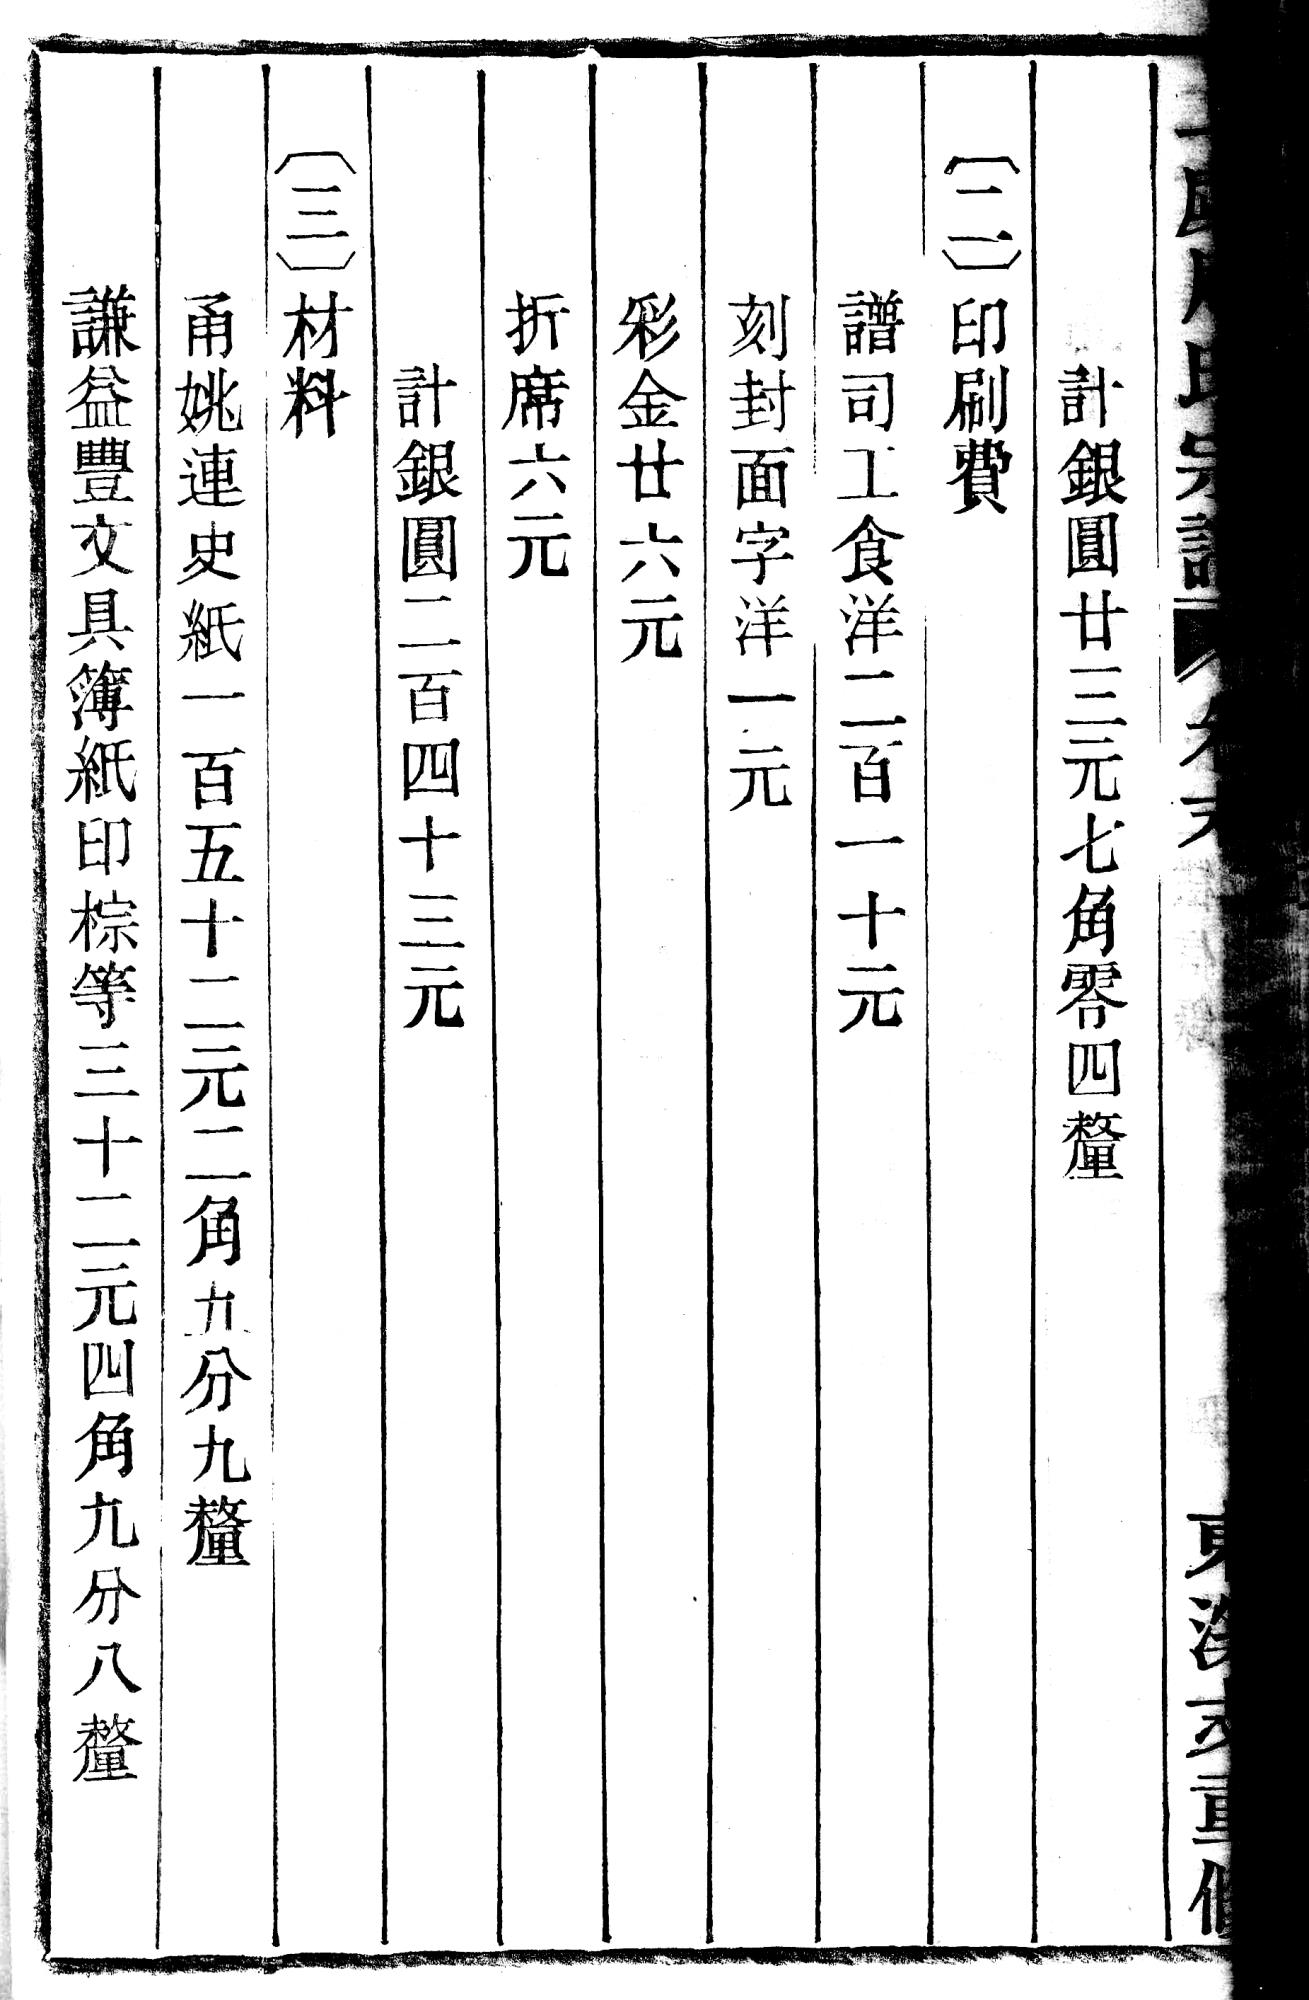 氏宗譜
東 重修
計銀圓廿三元七角零四釐
〔二〕印刷費
譜司工食洋二百一十元
刻封面字洋一元
彩金廿六元
折席六元
計銀圓二百四十三元
〔三〕材料
甬姚連史紙一百五十二元二角九分九釐
謙益豐文具簿紙印棕等三十二元四角九分八釐